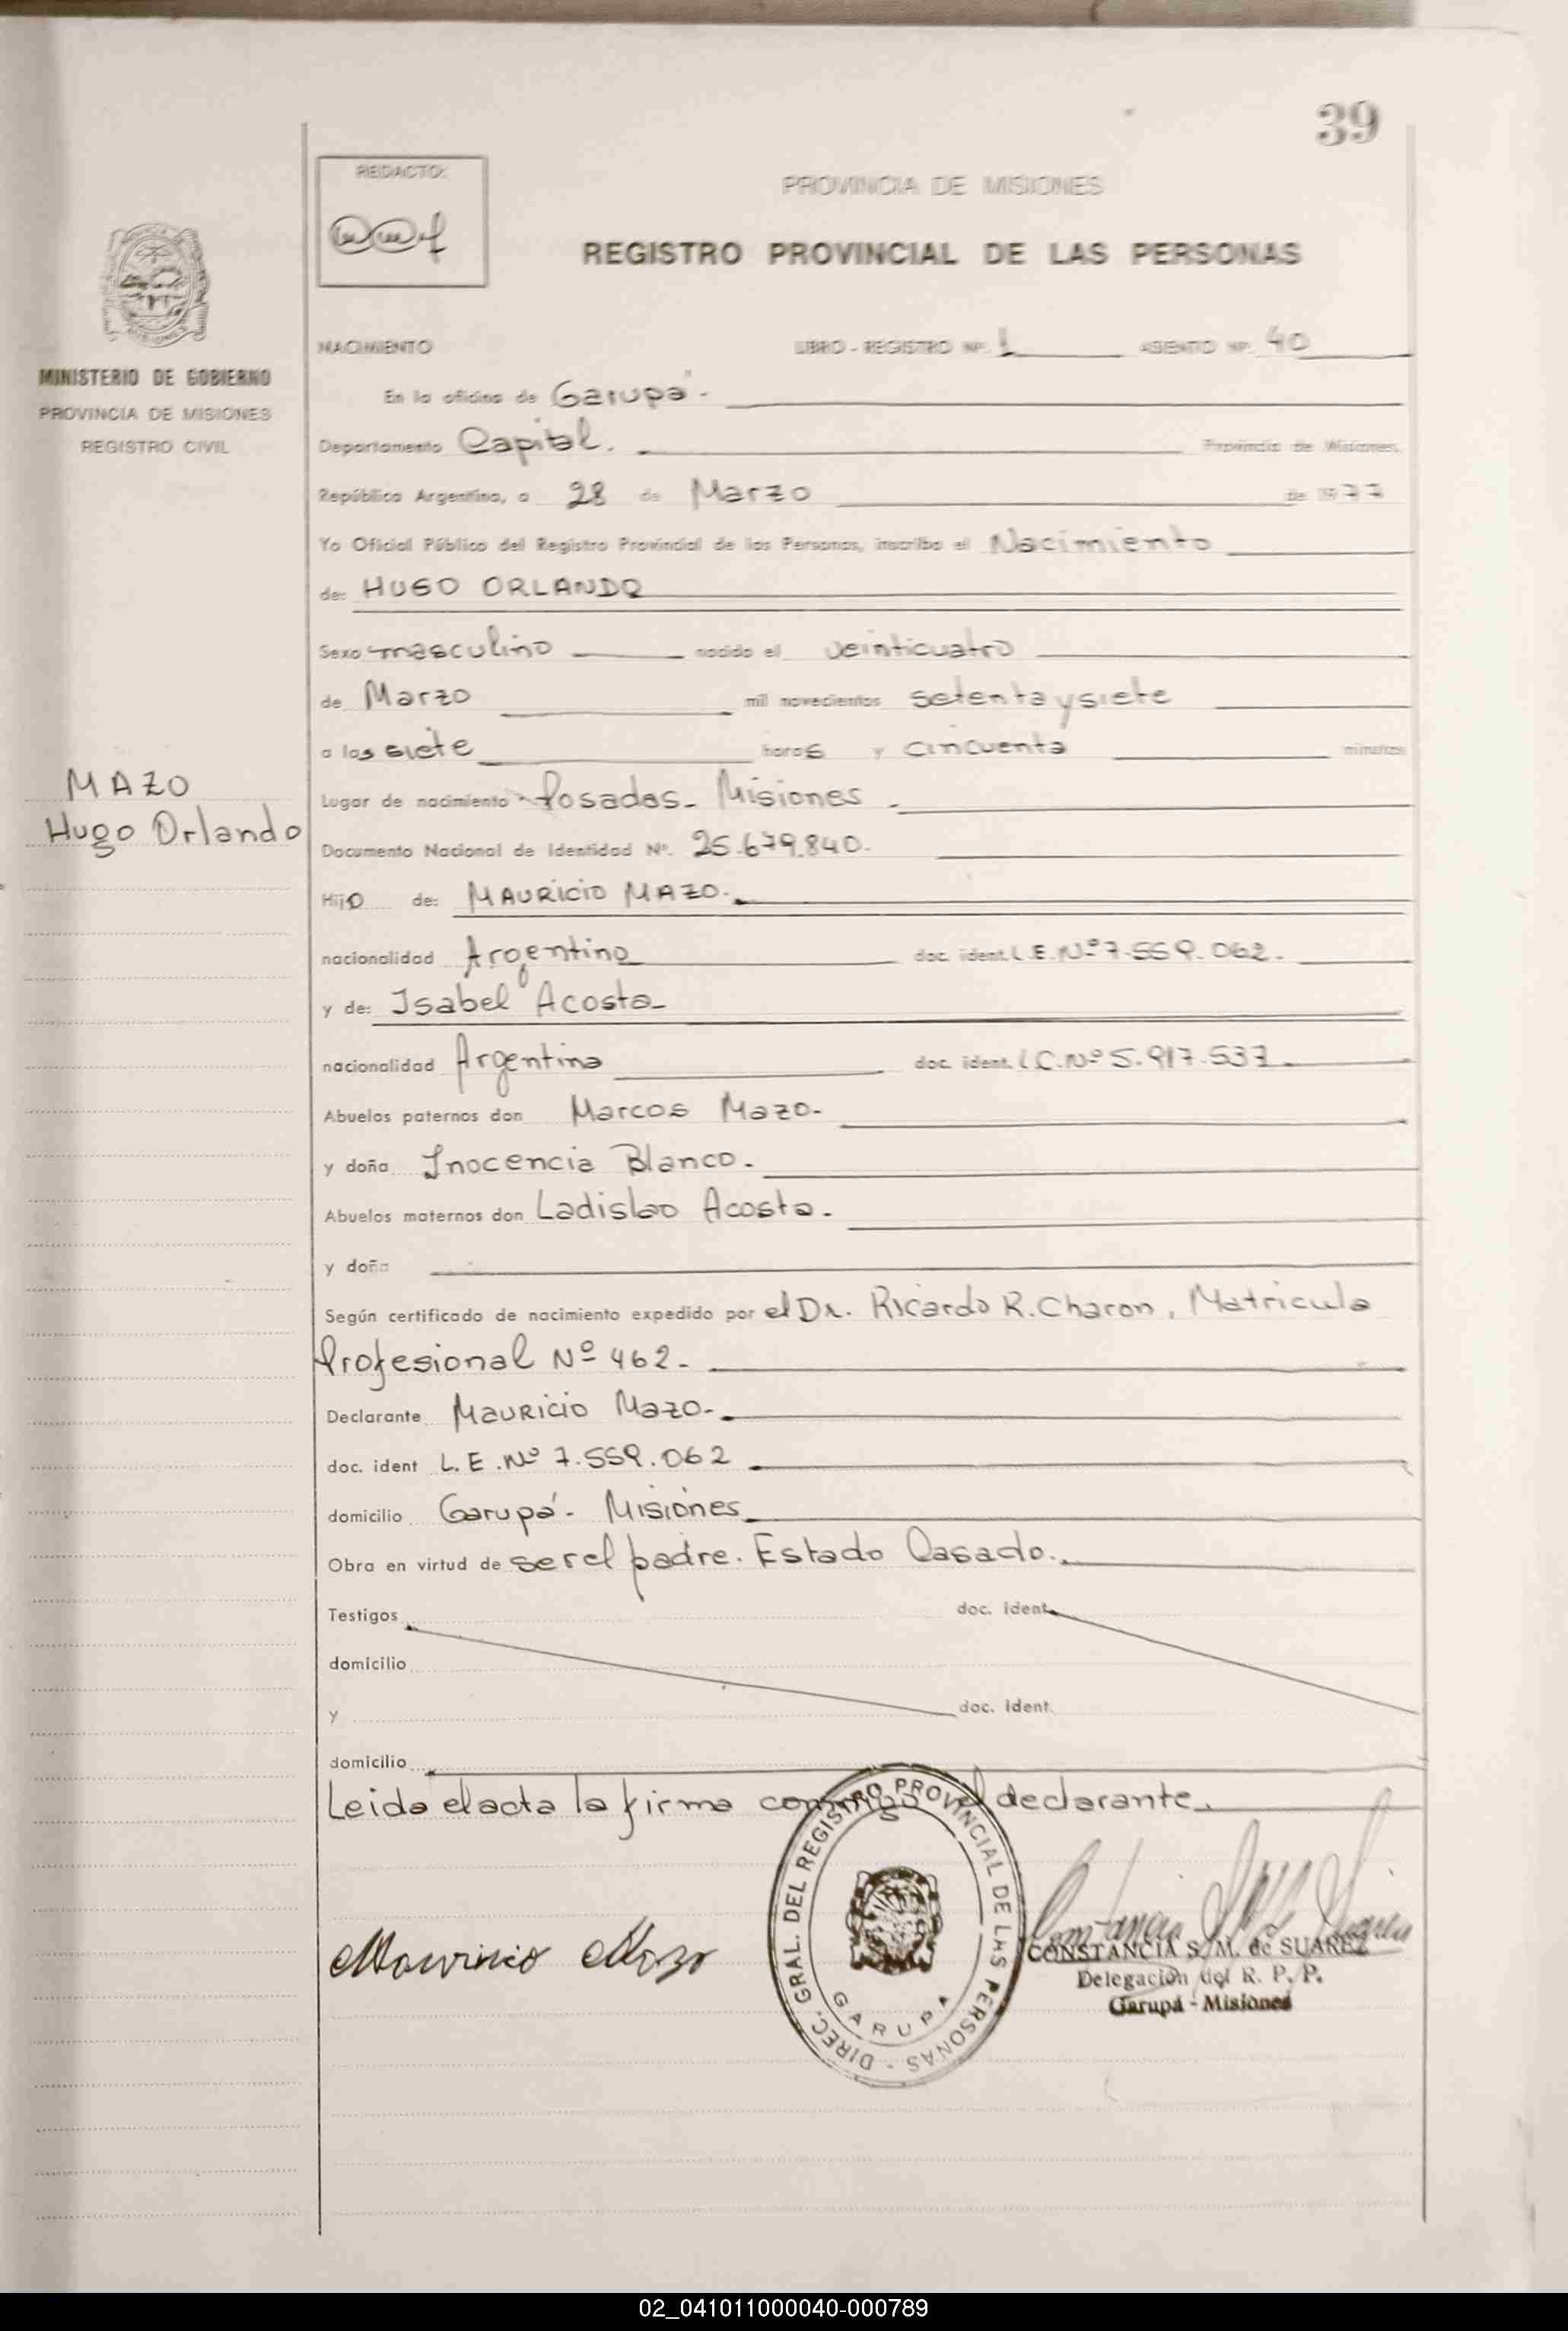 39
REDACTO:
PROVINCIA DE MISIONES
REGISTRO PROVINCIAL DE LAS PERSONAS
MINISTERIO DE GOBIERNO
PROVINCIA DE MISIONES
REGISTRO CIVIL
MAZO
Hugo Orlando
NACIMIENTO LIBRO - REGISTRO Nº. 1 ASIENTO Nº. 40
En la oficina de Garupá -
Departamento Capital. Provincia de Misiones,
República Argentina, a 28 de Marzo de 1977
Yo Oficial Público del Registro Provincial de las Personas, inscribo el Nacimiento
de: HUGO ORLANDO
Sexo masculino nacido el veinticuatro
de Marzo mil novecientos setenta y siete
a las siete horas y cincuenta minutos
Lugar de nacimiento Posadas - Misiones
Documento Nacional de Identidad Nº. 25.679.840.
Hijo de: MAURICIO MAZO.
nacionalidad Argentino doc. ident. L.E. Nº 7.559.062.
y de: Isabel Acosta
nacionalidad Argentina doc. ident. L.C. Nº 5.917.537
Abuelos paternos don Marcos Mazo-
y doña Inocencia Blanco.
Abuelos maternos don Ladislao Acosta.
y doña
Según certificado de nacimiento expedido por el Dr. Ricardo R. Charon, Matricula
Profesional Nº 462.
Declarante Mauricio Mazo-
doc. ident L. E. Nº 7.559.062
domicilio Garupá - Misiones
Obra en virtud de ser el padre. Estado Casado.
Testigos doc. ident.
domicilio
y doc. ident.
domicilio
Leida el acta la firma conmigo el declarante.
Mauricio Mazo
DIREC. GRAL. DEL REGISTRO PROVINCIAL DE LAS PERSONAS -
GARUPA
CONSTANCIA S. M. de SUAREZ
Delegación del R. P. P.
Garupá - Misiones
02_041011000040-000789